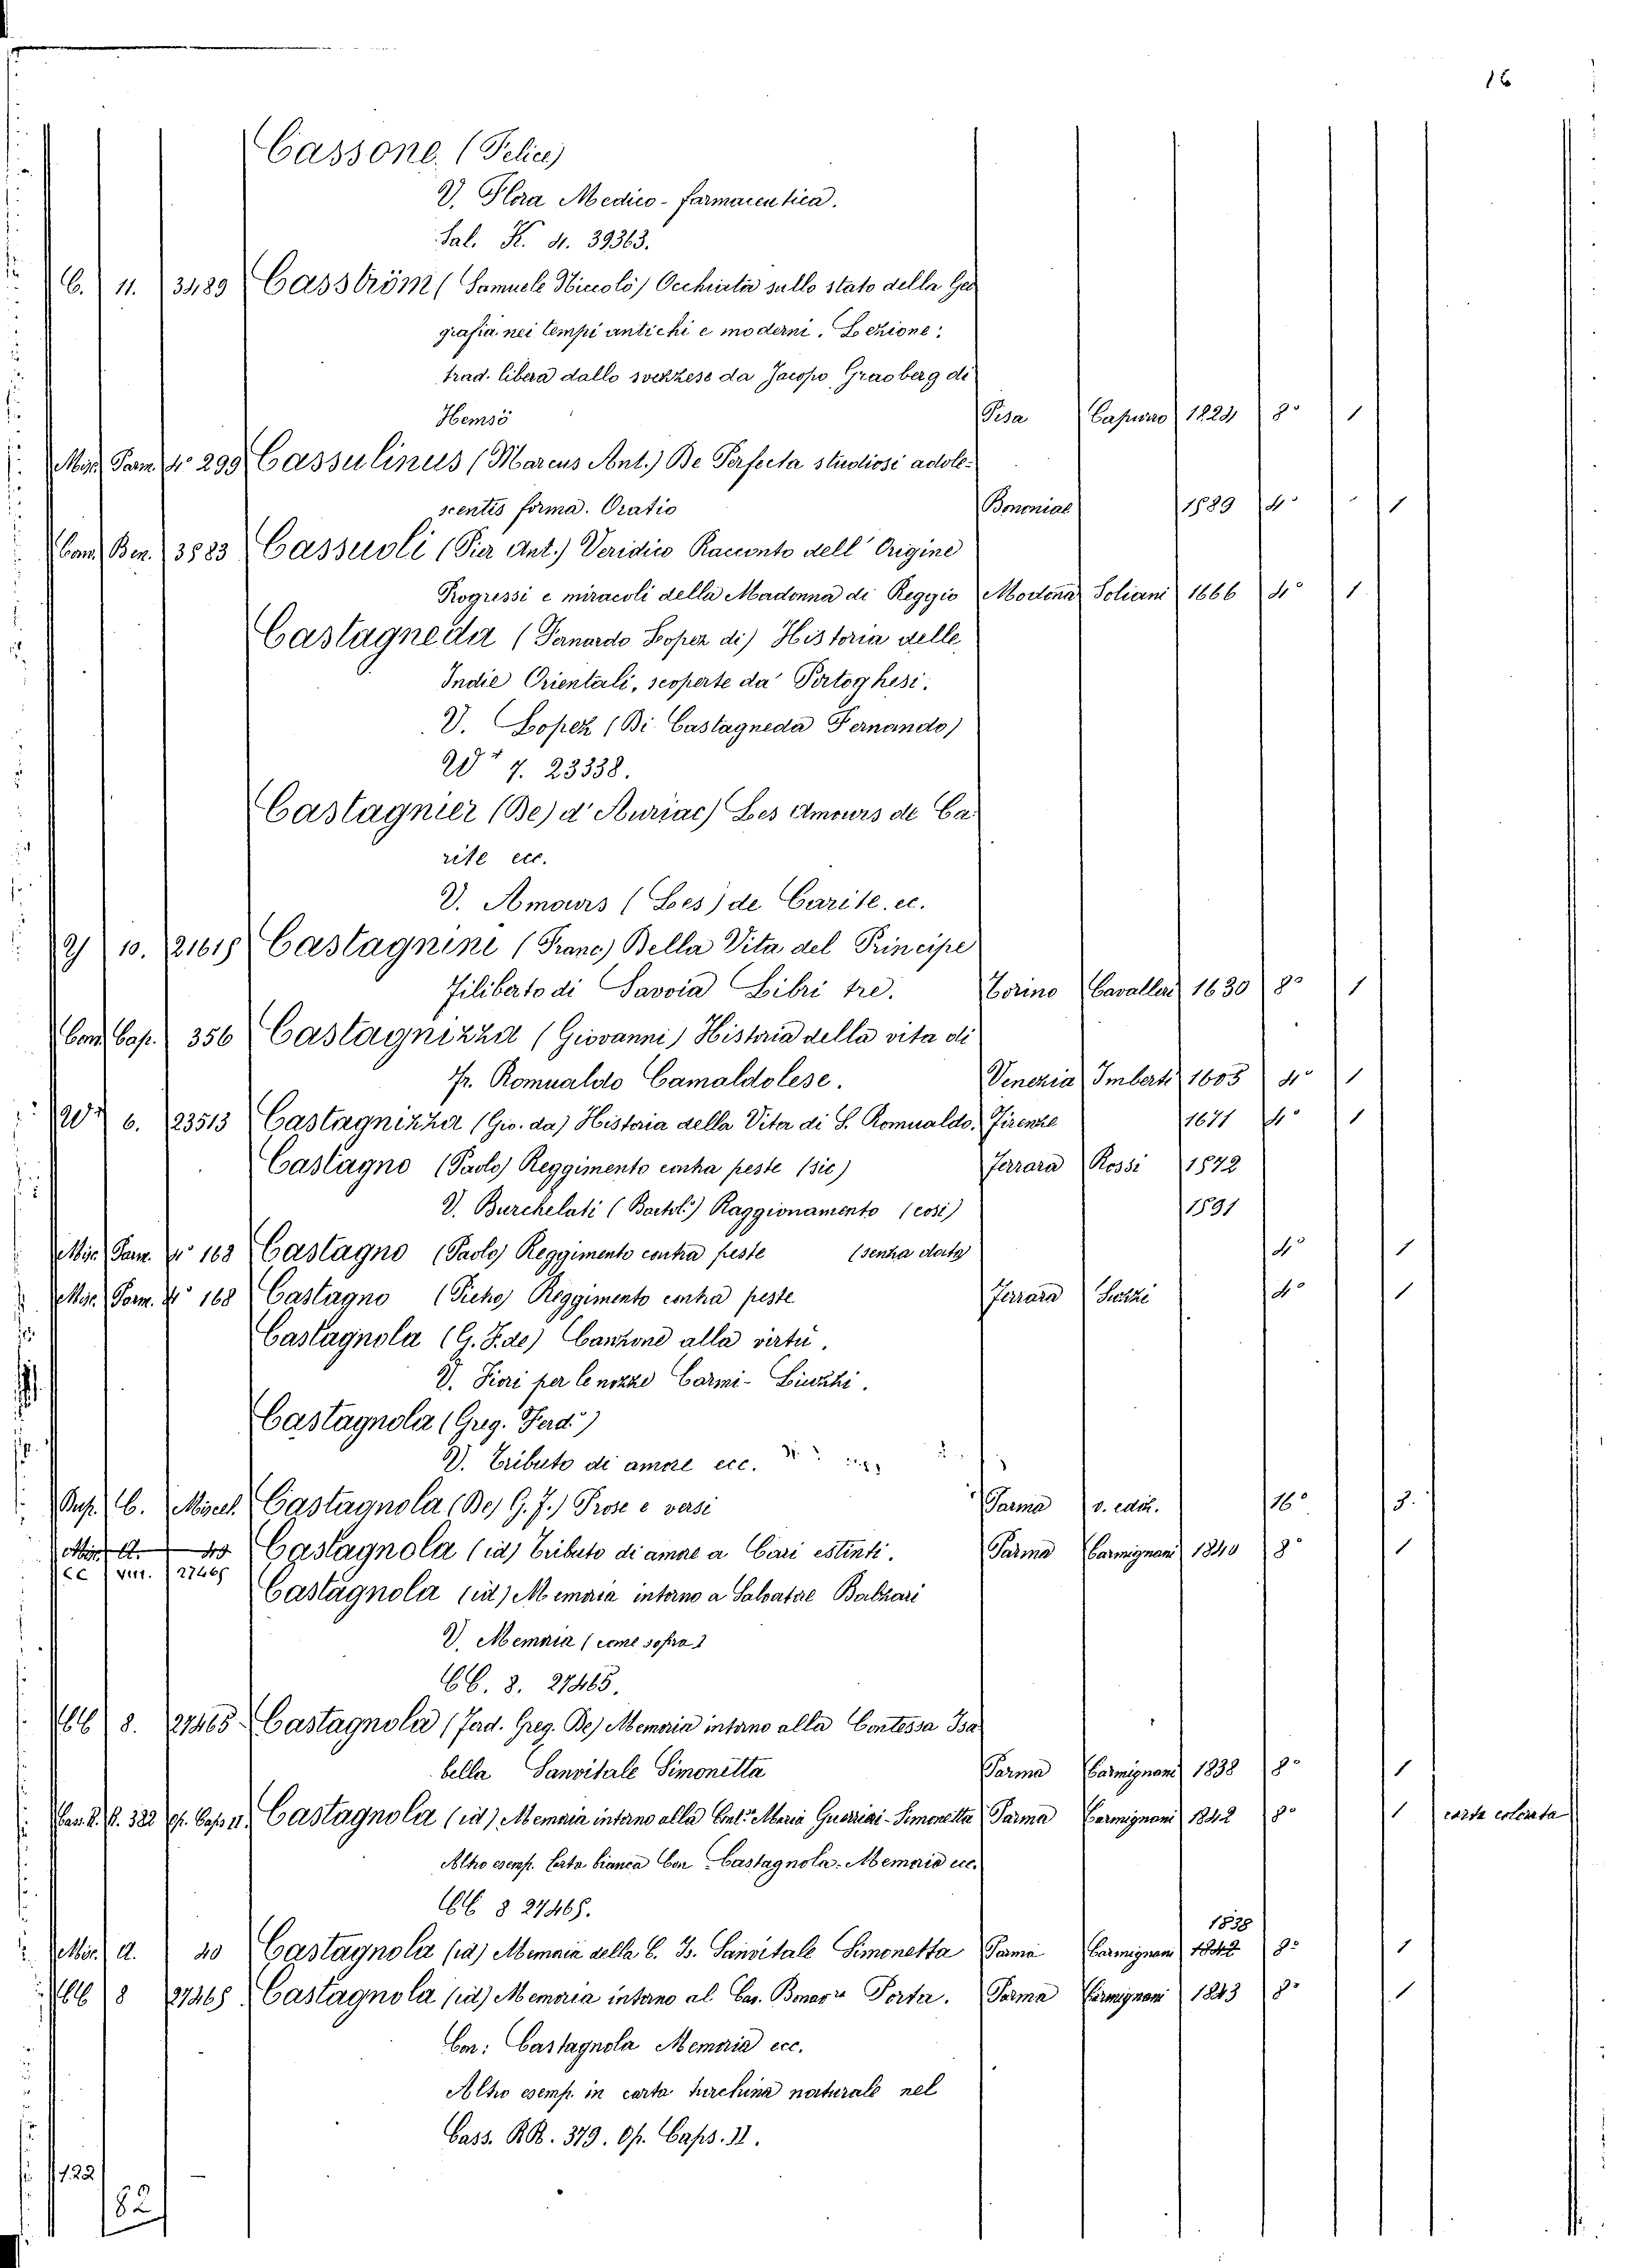 16
Cassone. (Felice)
V. Flora Medico-farmaceutica.
Sal. K. 4. 39363.
C. 11. 3489 Casström (Samuele Niccolò) Occhiata sullo stato della Geo
grafia nei tempi antichi e moderni. Lezione;
trad. libera dallo svezzese da Jacopo Graoberg di
Hemsö Pisa Capurro 1824 8° 1
Misc. Parm. 4° 299 Cassulinus (Marcus Ant.) De Perfecta studiosi adole-
scentis forma. Oratio Bononiae 1589 4° 1
Cam. Ben. 3583 Cassuoli (Pier Ant.) Veridico Racconto dell' Origine
Progressi e miracoli della Madonna di Reggio Modena Soliani 1666 4° 1
Castagneda (Fernardo Lopez di) Historia delle
Indie Orientali, scoperte da' Portoghesi.
V. Lopez (Di Castagneda Fernando)
7. 23338.
Castagnier (De) d'Auriac) Les Amours de Ca-
rite ecc.
V. Amours (Les) de Carite. ec.
Y 10. 21618 Castagnini (Franc) Della Vita del Principe
Filiberto di Savoia Libri tre. Torino Cavalleri 1630 8° 1
Can. Cap. 356 Castagnizza (Giovanni) Historia della vita di
Fr. Romualdo Camaldolese. Venezia Imberti 1605 4° 1
6. 23513 Castagnizza (Gio. da) Historia della Vita di S. Romualdo. Firenze 1671 4° 1
Castagno (Paolo) Reggimento contra peste (sic) Ferrara Rossi 1572
V. Burchelati (Bartol.) Raggionamento (così) 1591
Misc. Parm. 4° 168 Castagno (Paolo) Reggimento contra peste (senza data) 4° 1
Misc. Parm. 4° 168 Castagno (Pietro) Reggimento contra peste Ferrara Suzzi 4° 1
Castagnola (G. F. de) Canzone alla virtù.
V. Fiori per le nozze Carmi-Liuzzi.
Castagnola (Greg. Ferd.)
V. Tributo di amore ecc.
C. Miscel. Castagnola (De) G. F.) Prose e versi Parma v. ediz. 16° 3.
Misc. A. 40 Castagnola (id) Tributo di amore a Cari estinti. Parma Carmignani 1840 8° 1
CC VIII. 27465
Castagnola (id) Memoria intorno a Salvatore Balzari
V. Memoria (come sopra)
CC. 8. 27465.
CC 8. 27465 Castagnola (Ferd. Greg. De) Memoria intorno alla Contessa Isa
bella Sanvitale Simonetta Parma Carmignani 1838 8° 1
Cas. R. R. 382 Op. Caps 11. Castagnola (id) Memoria intorno alla Cont. Maria Guerrieri-Simonetta Parma Carmignani 1842 8° 1 carta colorata
Altro esemp. Carta bianca Con Castagnola. Memorie ecc.
CC 8 27465.
1838
Misc. A. 40 Castagnola (id) Memoria della C. Is. Sanvitale Simonetta Parma Carmignani 1842 8° 1
CC 8 27465 Castagnola (id) Memoria intorno al Cav. Porta. Parma Carmignani 1843 8° 1
Con: Castagnola Memoria ecc.
Altro esemp. in carta turchina naturale nel
Cass. RR. 379. Op. Caps. 11.
122
82